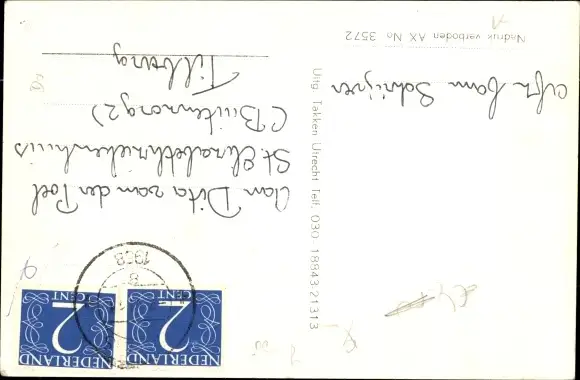 NEDERLAND
2
CENT
NEDERLAND
2
CENT
1958
Aan Dita van der Poel
St. Elisabethziekenhuis
Tilburg
Uitg. Takken Utrecht Telf. 030-18843-21313
afz. Schrijver
Nadruk verboden AX No 3572